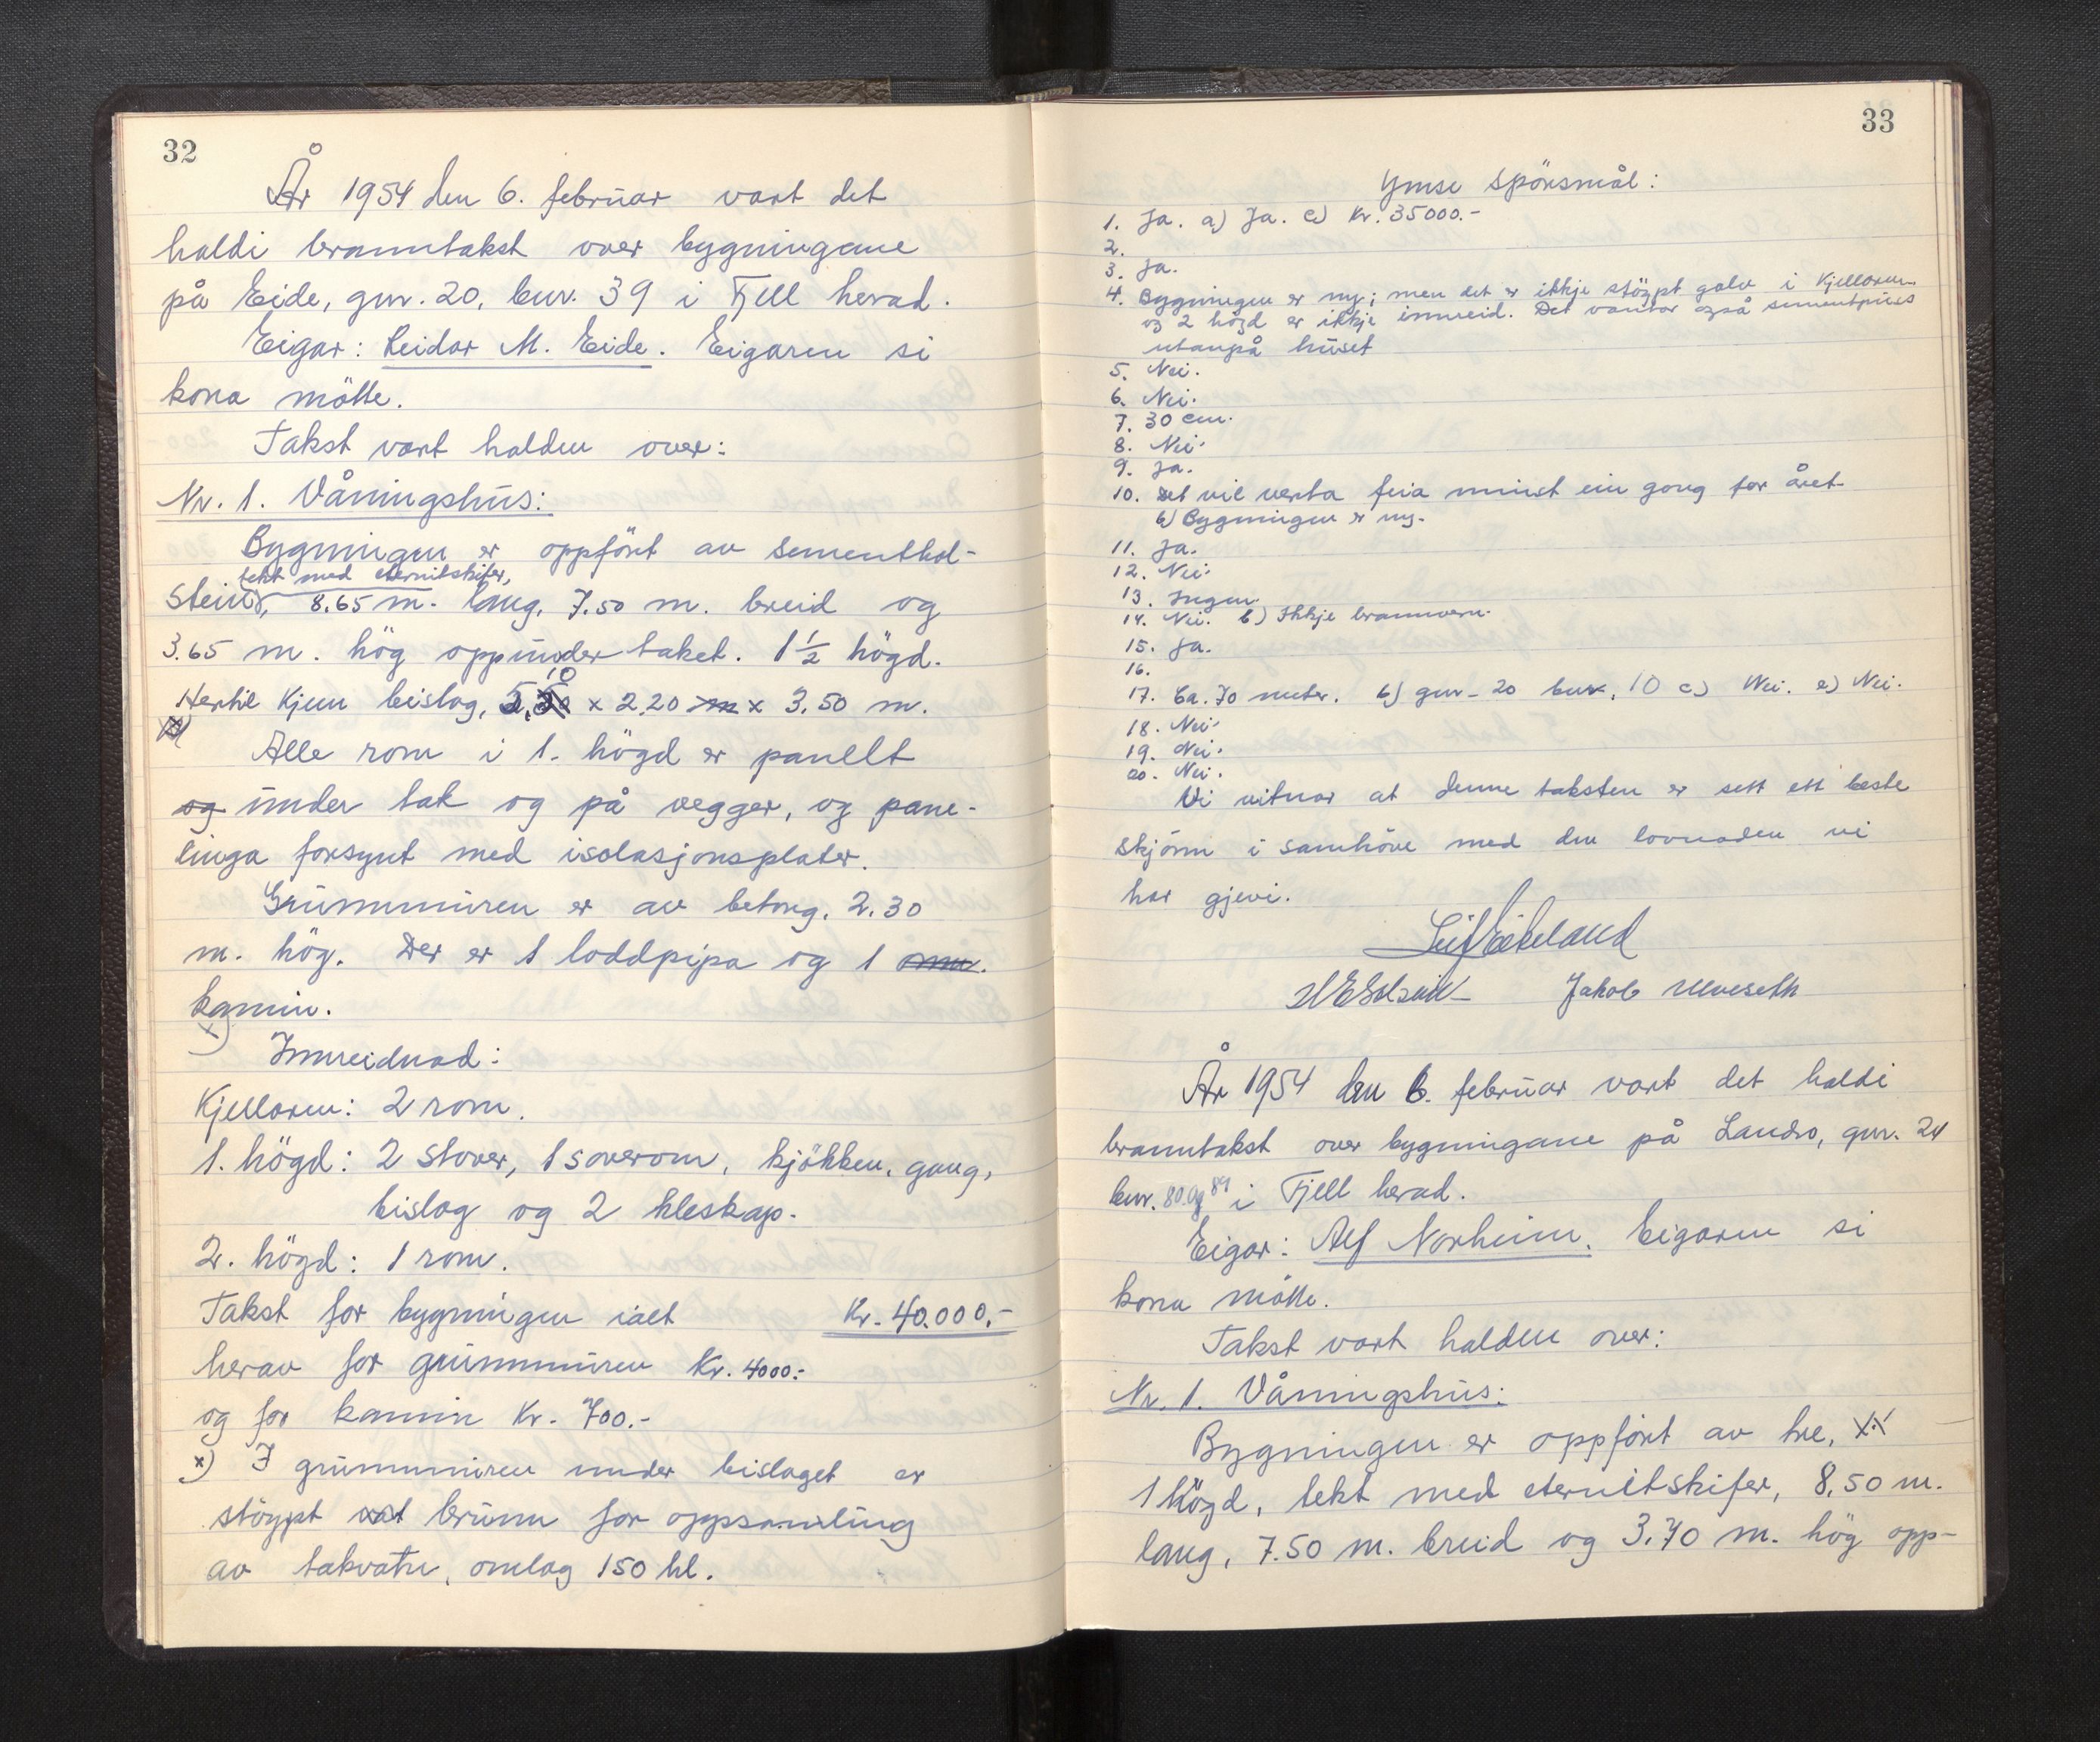 32
År 1954 den 6. februar vart det
haldi branntakst over bygningane
på Eide, gnr. 20, bnr. 39 i Fjell herad.
Eigar: Reidar M. Eide. Eigaren si
kona møtte.
Takst vart halden over:
Nr. 1. Våningshus:
Bygningen er oppført av sementhol-
tekt med eternitskifer,
stein, 8.65 m. lang, 7.50 m. breid og
3.65 m. høg oppunder taket. 1 1/2 høgd.
Hertil kjem bislag, 10 x 2.20 m x 3.50 m.
x)
Alle rom i 1. høgd er panelt
og under tak og på vegger, og pane-
linga forsynt med isolasjonsplater.
Grunnmuren er av betong. 2.30
m. høg. Der er 1 loddpipa og 1 omn.
kamin.
x)
Innreidnad:
Kjellaren: 2 rom.
1. høgd: 2 stover, 1 soverom, kjøkken, gang,
bislag og 2 kleskap.
2. høgd: 1 rom.
Takst for bygningen ialt Kr. 40.000.-
herav for grunnmuren Kr. 4000.-
og for kamin Kr. 700.-
x) I grunnmuren under bislaget er
støypt brunn for oppsamling
av takvatn, omlag 150 hl.
33
Ymse spørsmål:
1. Ja. a) Ja. c) Kr. 35000.-
2.
3. Ja.
4. Bygningen er ny; men det er ikkje støypt golv i kjellaren
og 2 høgd er ikkje innreid. Det vantar også sementpuss
utanpå huset
5. Nei.
6. Nei.
7. 30 cm.
8. Nei.
9. Ja.
10. Det vil verta feia minst ein gong for året.
b) Bygningen er ny.
11. Ja.
12. Nei.
13. Ingen.
14. Nei. b) Ikkje brannvern.
15. Ja.
16.
17. Ca. 70 meter. b) gnr. 20 bnr. 10 c) Nei. e) Nei.
18. Nei.
19. Nei.
20. Nei.
Vi vitnar at denne taksten er sett ett beste
skjønn i samhøve med den lovnaden vi
har gjevi.
Leif Eikeland
Jakob Ulveseth
År 1954 den 6. februar vart det haldi
branntakst over bygningane på Landro, gnr. 24
bnr. 80 og 89 i Fjell herad.
Eigar: Alf Norheim. Eigaren si
kona møtte.
Takst vart halden over:
Nr. 1. Våningshus:
Bygningen er oppført av tre, xx
1 høgd, tekt med eternitskifer, 8,50 m.
lang, 7.50 m. breid og 3.70 m. høg opp-